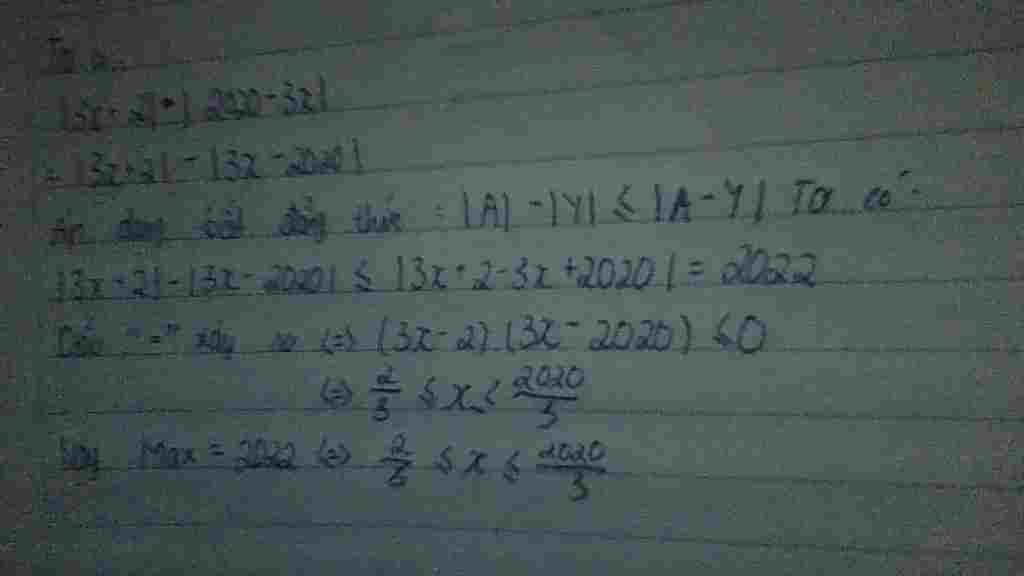 Ta có
|3x + 2| - |2020 - 3x|
= |3x + 2| - |3x - 2020|
Áp dụng bất đẳng thức : |A| - |Y| ≤ |A - Y| Ta có
|3x + 2| - |3x - 2020| ≤ |3x + 2 - 3x + 2020| = 2022
Dấu "=" xảy ra (=) (3x - 2).(3x - 2020) ≤ 0
(=) 2/3 ≤ x ≤ 2020/3
Vậy Max = 2022 (=) 2/3 ≤ x ≤ 2020/3